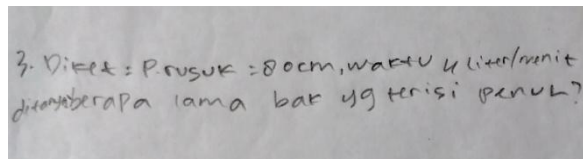 3. Diket : P. rusuk = 80cm, waktu 4 liter/menit
ditanya berapa lama bak yg terisi penuh?